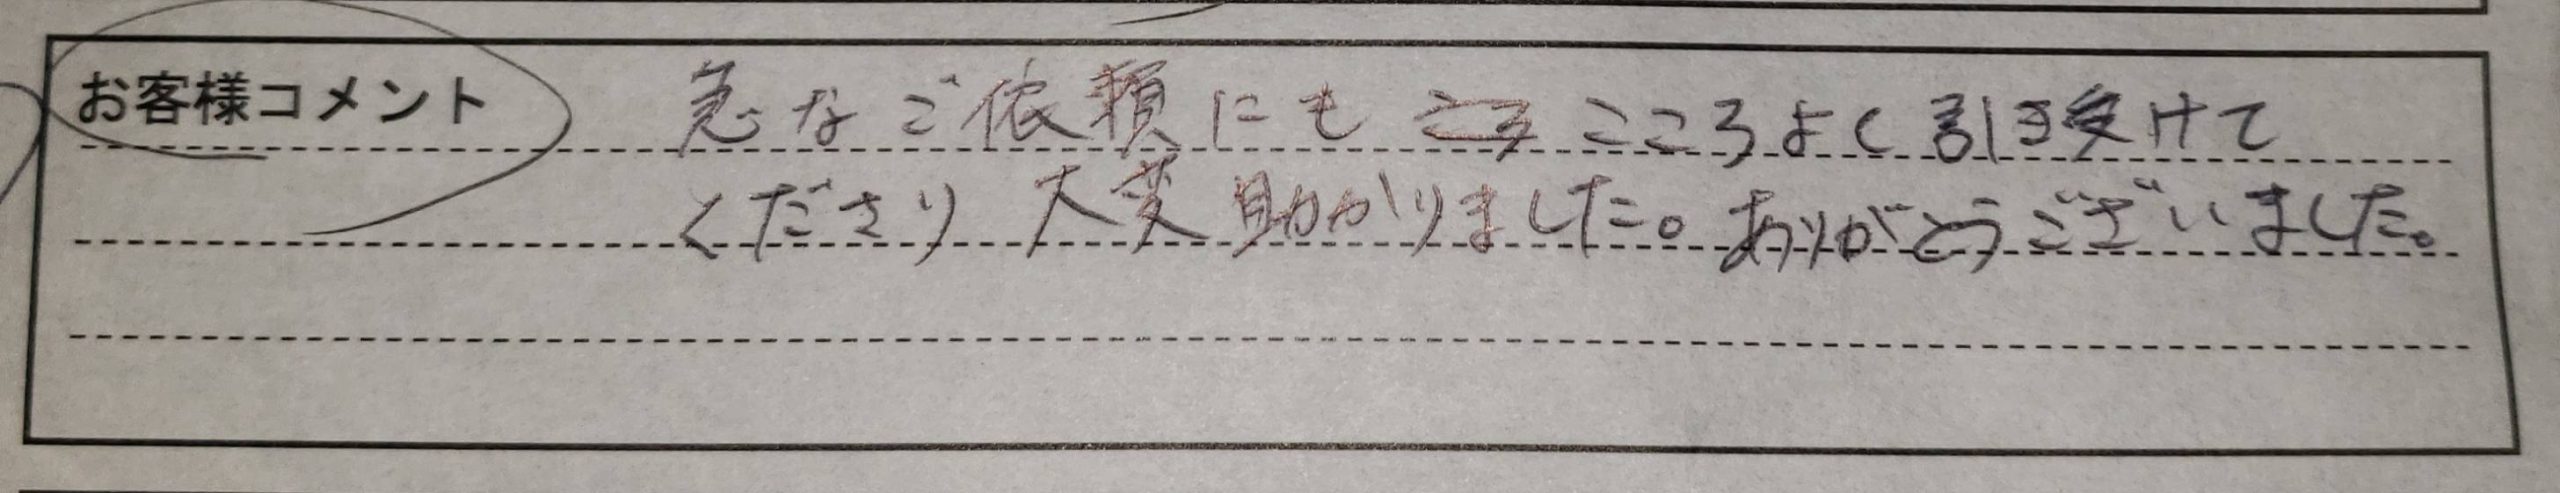 お客様コメント
急なご依頼にも こころよく引き受けて
くださり 大変助かりました。ありがとうございました。